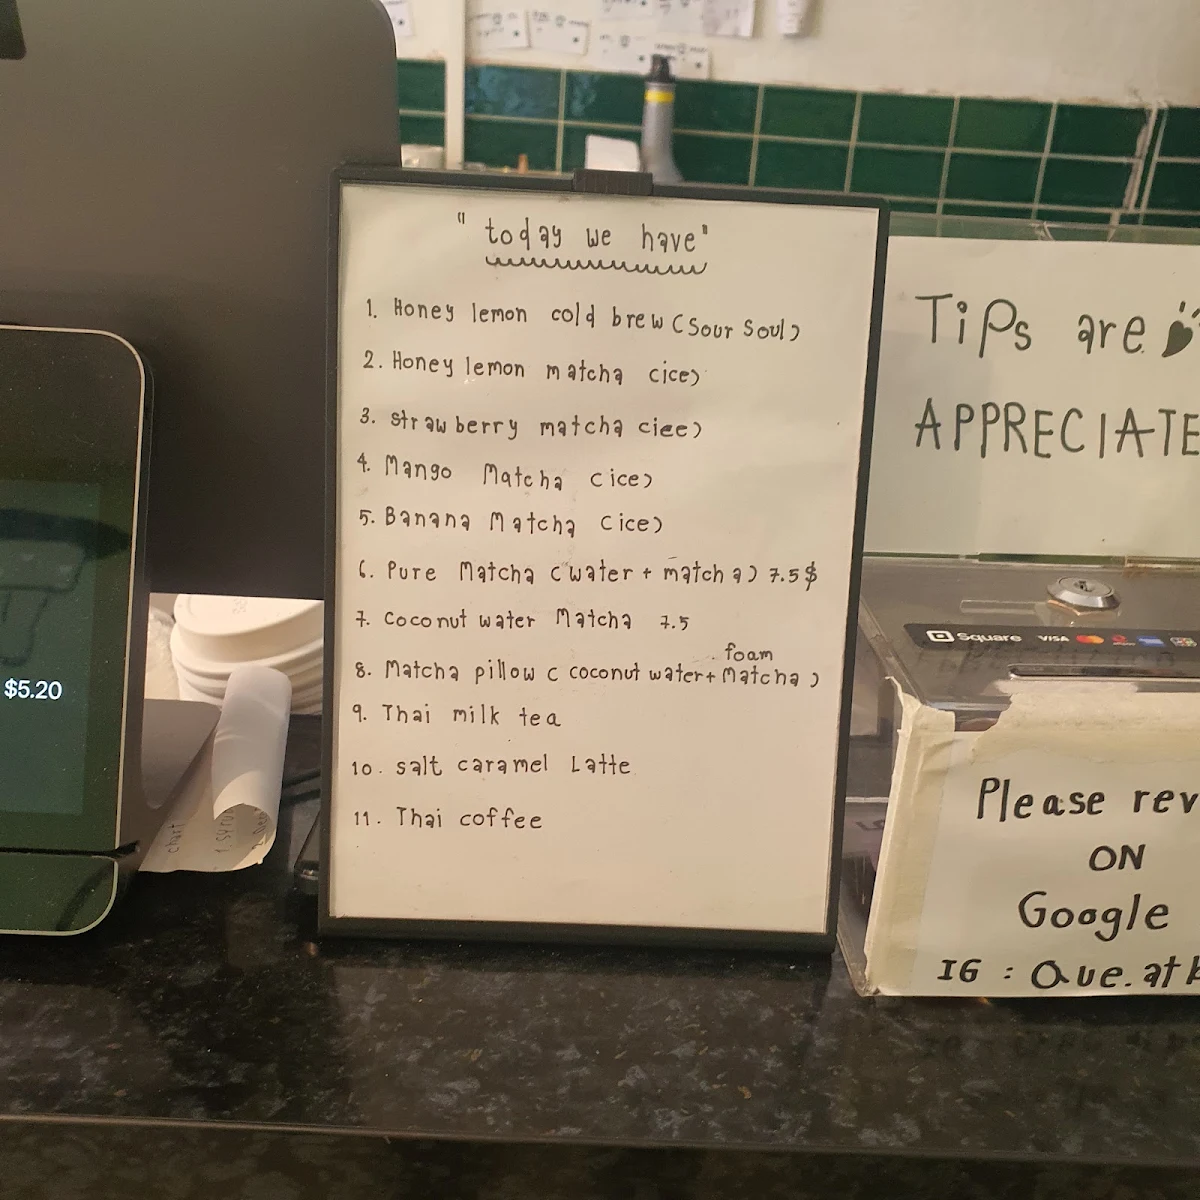 "today we have"
1. Honey lemon cold brew (Sour Soul)
2. Honey lemon matcha (ice)
3. strawberry matcha (iee)
4. Mango Matcha (ice)
5. Banana Matcha (ice)
6. Pure Matcha (water + matcha) 7.5$
7. Coconut water Matcha 7.5
foam
8. Matcha pillow (coconut water + Matcha)
9. Thai milk tea
10. salt caramel Latte
11. Thai coffee
$5.20
chart
Tips are
APPRECIATE
Square VISA
Please rev
ON
Google
IG : Que.at